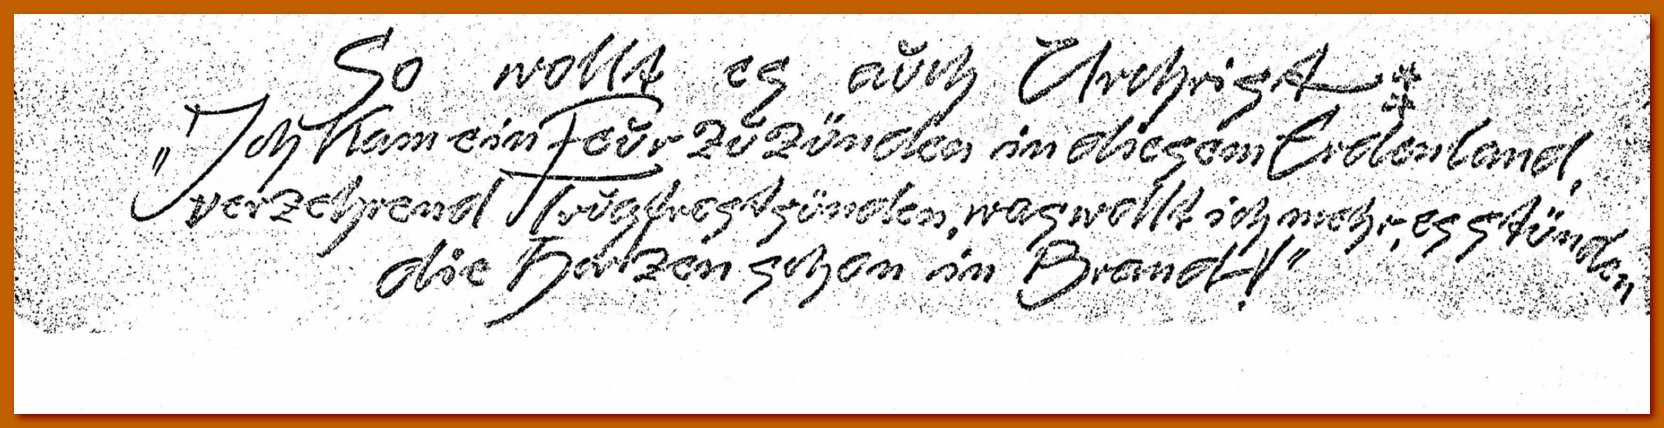 So wollt es auch Urchrist **
"Ich kam ein Feur zu zünden in diesem Erdenland,
verzehrend Trugfrostsünden, was wollt ich mehr, es stünden
die Herzen schon in Brand!"